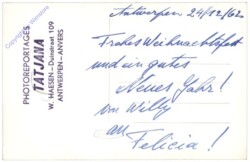 PHOTOREPORTAGES
TATJANA
W. HAESEN - Duinstraat 109
ANTWERPEN - ANVERS
Antwerpen 24/12/62
Frohes Weihnachtsfest
und ein gutes
Neues Jahr!
von Willy
an
Felicia!